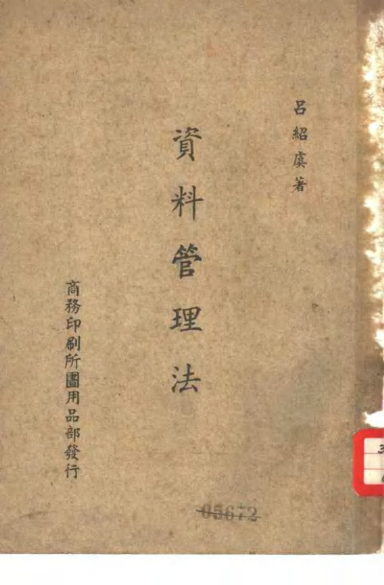 呂紹虞著
資料管理法
商務印刷所圖用品部發行
05672
3